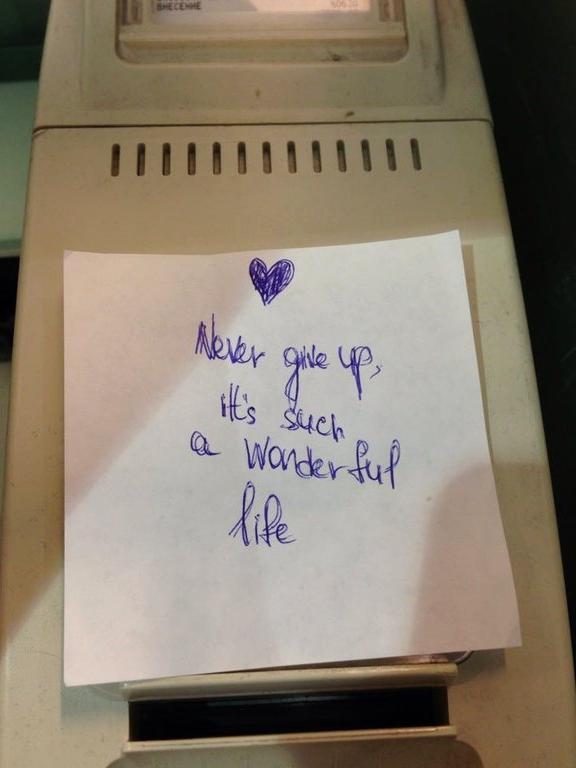 ВНЕСЕНИЕ
Never give up,
it's such
a wonderful
life